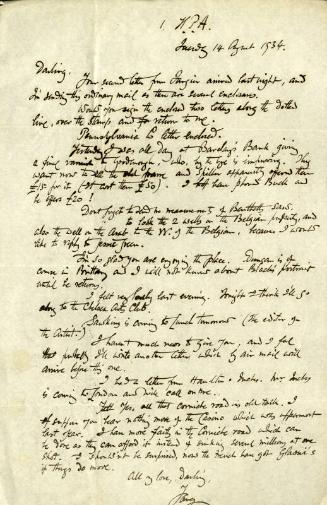 1. W.P.A.
Tuesday 14 August 1934.
Darling.
Your second letter from Tangier arrived last night, and
I'm sending this ordinary mail as there are several enclosures.
Would you sign the enclosed two letters along the dotted
line, over the stamps and return to me.
Pennsylvania Co letter enclosed.
Yesterday I was all day at Barclay's Bank giving
a final varnish to Goodenough, who, by the bye is improving. They
want now to sell the old frame and Spiller apparently offered them
£15 for it (It cost them £50). I
he offers £20!
Don't forget to send me measurements of
to the 2 wells on the Belgian property, and
also the well on the land to the W. of the Belgian, because I would
like to reply to
I'm so glad you are enjoying the place. Duncan is of
course in Brittany and I will not know about Black's portrait
until he returns.
I felt very lonely last evening. Tonight I think I'll go
along to the Chelsea Arts Club.
is coming to lunch tomorrow (the editor of
the Artist.)
I haven't much news to give you, and I feel
that probably I'll write another letter which by air mail will
arrive before this one.
I had a letter from Hamilton Inches. Mr Inches
is coming to London and will call on me.
Yes, all that corniche road is old talk. I
suppose you hear nothing more of the Casino which was uppermost
last year. I have more faith in the Corniche road which can
be done as they can afford it instead of sinking several millions at one
shot. I shouldn't be surprised, now the French have got
if things do move.
All my love, darling.